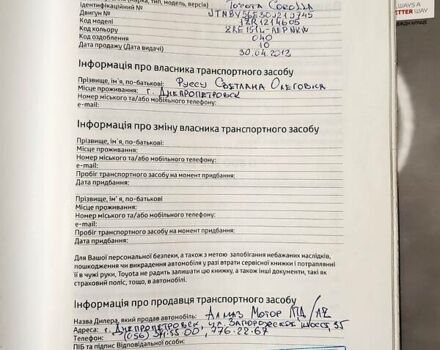 (марка, тип, модель, версія) Toyota Corolla
Ідентифікаційний №
Двигун № 1ZR1214605
Код моделі
Код кольору 040
Код оздоблення 10
Дата продажу (Дата видачі) 30.04.2012
ALWAYS A
BETTER WAY
Інформація про власника транспортного засобу
Прізвище, ім'я, по-батькові: Руссу Светлана Олеговна
Місце проживання: г. Днепропетровск
Номер міського та/або мобільного телефону:
e-mail:
Інформація про зміну власника транспортного засобу
Прізвище, ім'я, по-батькові:
Місце проживання:
Номер міського та/або мобільного телефону:
e-mail:
Пробіг транспортного засобу на момент придбання:
Дата придбання:
Прізвище, ім'я, по-батькові
Місце проживання:
Номер міського та/або мобільного телефону:
e-mail:
Пробіг транспортного засобу на момент придбання:
Дата придбання:
Для Вашої персональної безпеки, а також з метою запобігання небажаних наслідків,
пошкодження чи викрадення автомобіля у разі втрати сервісної книжки і потраплянні
її в чужі руки, Toyota не радить залишати цю книжку, а також інші документи, такі як
страховий поліс, тощо, в автомобілі.
Інформація про продавця транспортного засобу
Назва Дилера, який продав автомобіль: Алмаз Мотор
Адреса: г. Днепропетровск, ул. Запорожское шоссе, 35
Телефон: (056) 776-22-67
ПІБ та підпис Відповідальної особи: